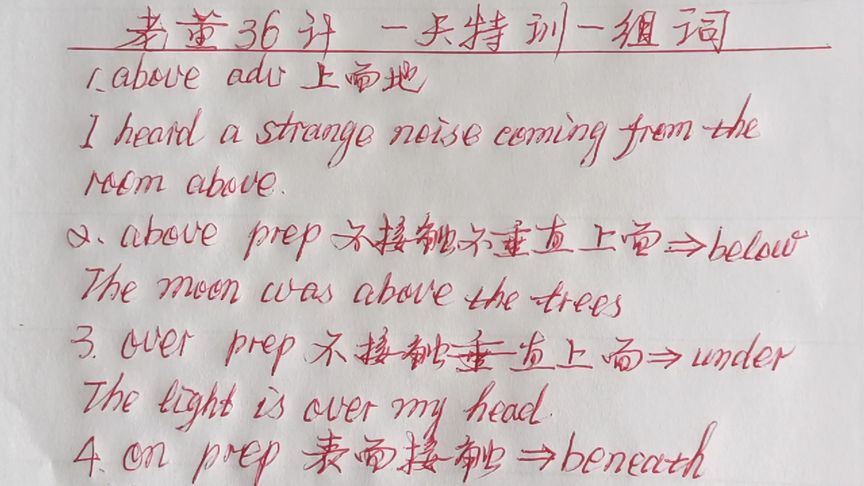 老董36计 一天特训一组词
1. above adv 上面地
I heard a strange noise coming from the
room above.
2. above prep 不接触不垂直上面⇒below
The moon was above the trees
3. over prep 不接触垂直上面⇒under
The light is over my head.
4. on prep 表面接触⇒beneath